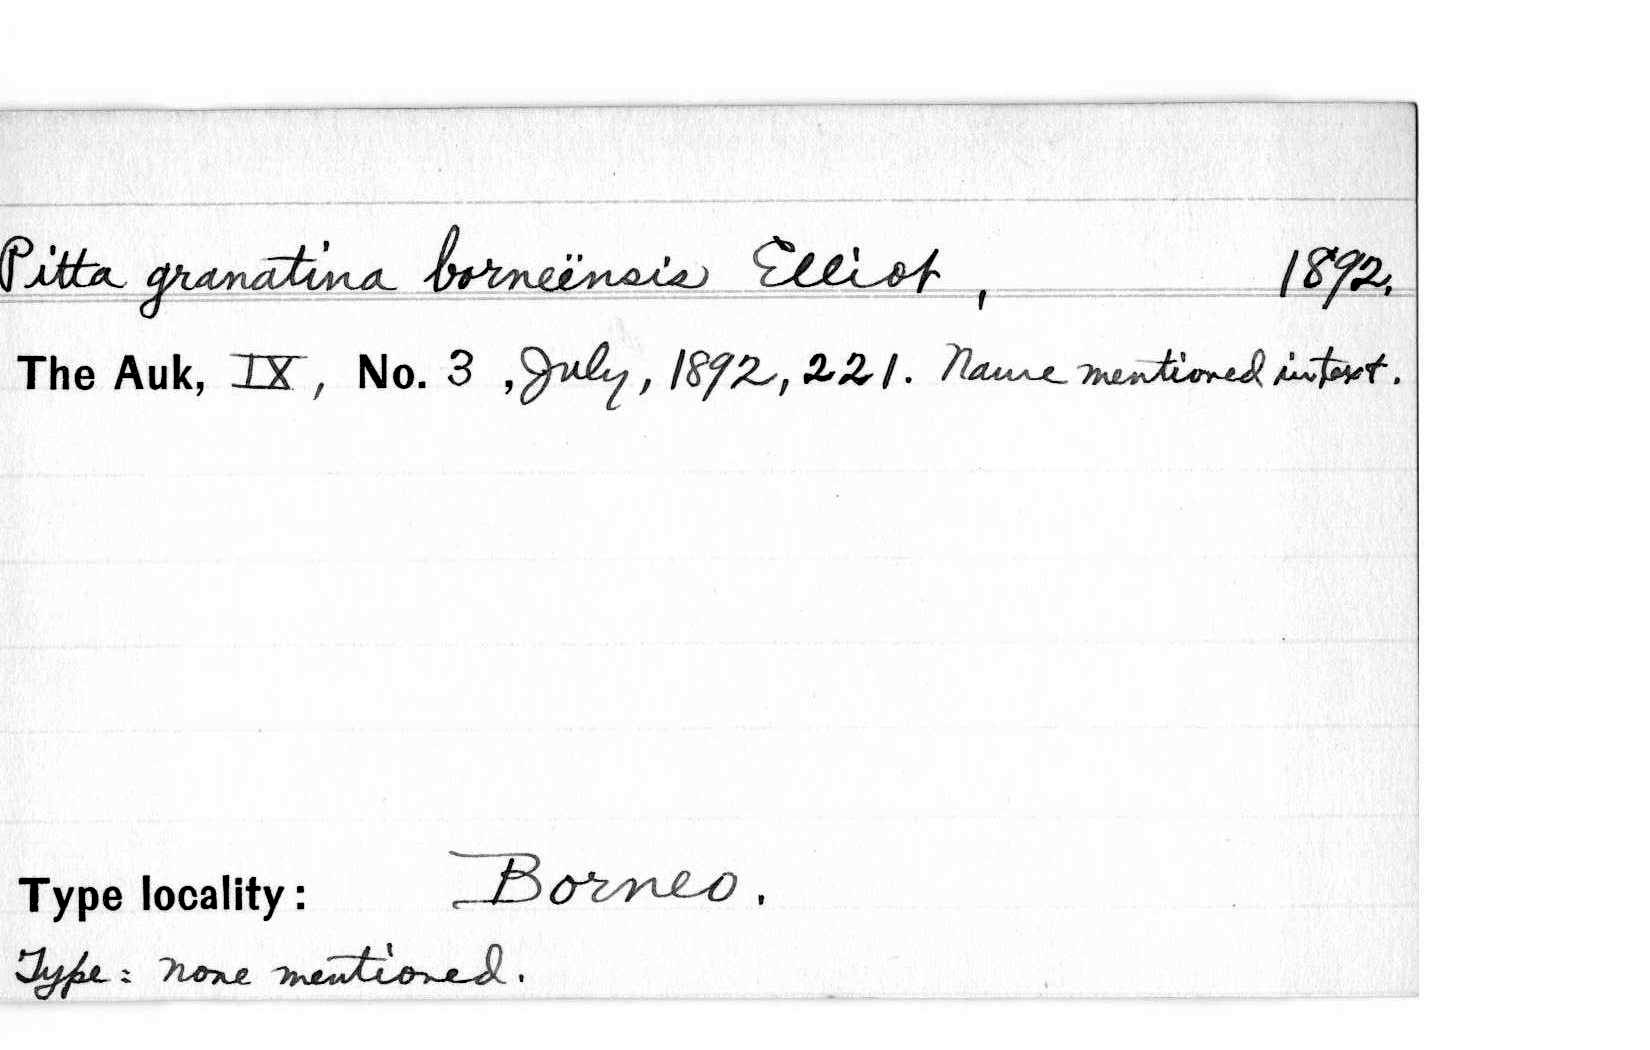 Pitta granatina borneënsis Elliot, 1892.
The Auk, IX, No. 3, July, 1892, 221. Name mentioned in text.
Type locality: Borneo.
Type: none mentioned.